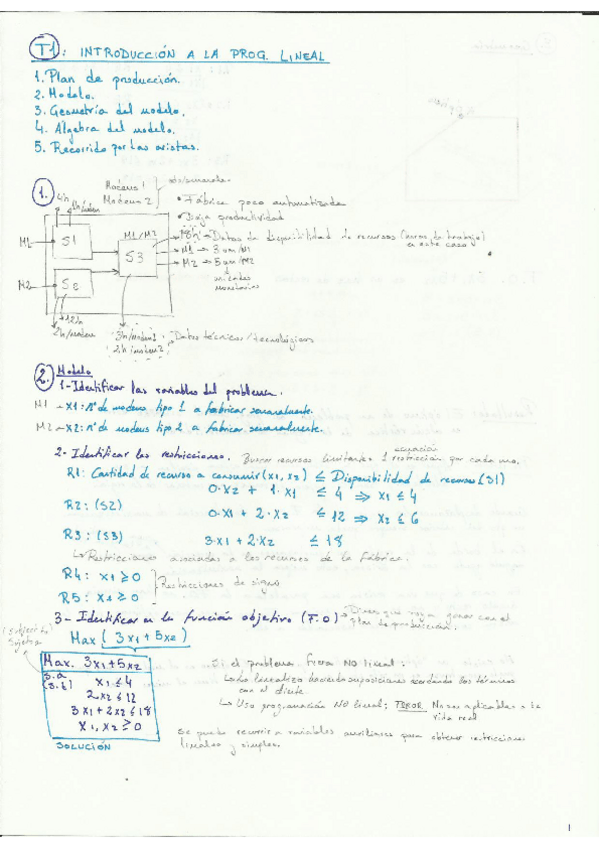 T1: INTRODUCCIÓN A LA PROG. LINEAL
1. Plan de producción.
2. Modelo.
3. Geometría del modelo.
4. Álgebra del modelo.
5. Recorrido por las aristas.
1.
Modems 1
Modems 2
• Fábrica poco automatizada
• Baja productividad
4h
S1
M1/M2
M1
S3
18h → Datos de disponibilidad de recursos (horas de trabajo)
en este caso
M1 → 3 um/M1
M2 → 5 um/M2
unidades
monetarias
M2
S2
12h
2h/modem
3h/modem1
2h/modem2
Datos técnicos/tecnológicos
2. Modelo
1- Identificar las variables del problema.
M1 → X1: nº de modems tipo 1 a fabricar semanalmente.
M2 → X2: nº de modems tipo 2 a fabricar semanalmente.
2- Identificar las restricciones. Buscar recursos limitantes 1 restricción por cada uno.
ecuación
R1: Cantidad de recurso a consumir (x1, x2) ≤ Disponibilidad de recursos (S1)
0·x2 + 1·x1 ≤ 4 ⇒ x1 ≤ 4
R2: (S2) 0·x1 + 2·x2 ≤ 12 ⇒ x2 ≤ 6
R3: (S3) 3·x1 + 2·x2 ≤ 18
↳ Restricciones asociadas a los recursos de la fábrica.
R4: x1 ≥ 0
R5: x2 ≥ 0
Restricciones de signo
3- Identificar en la función objetivo (F.O) → Dinero que voy a ganar con el
plan de producción.
Max (3x1 + 5x2)
(subject to)
Sujeto a
Max. 3x1 + 5x2
s.a
(s.t)
x1 ≤ 4
2x2 ≤ 12
3x1 + 2x2 ≤ 18
x1, x2 ≥ 0
SOLUCIÓN
Si el problema fuera NO lineal:
↳ Lo linealizo haciendo suposiciones acordando los términos
con el cliente.
↳ Uso programación NO lineal: ERROR No son aplicables a la
vida real
Se puede recurrir a variables auxiliares para obtener restricciones
lineales y simples.
1